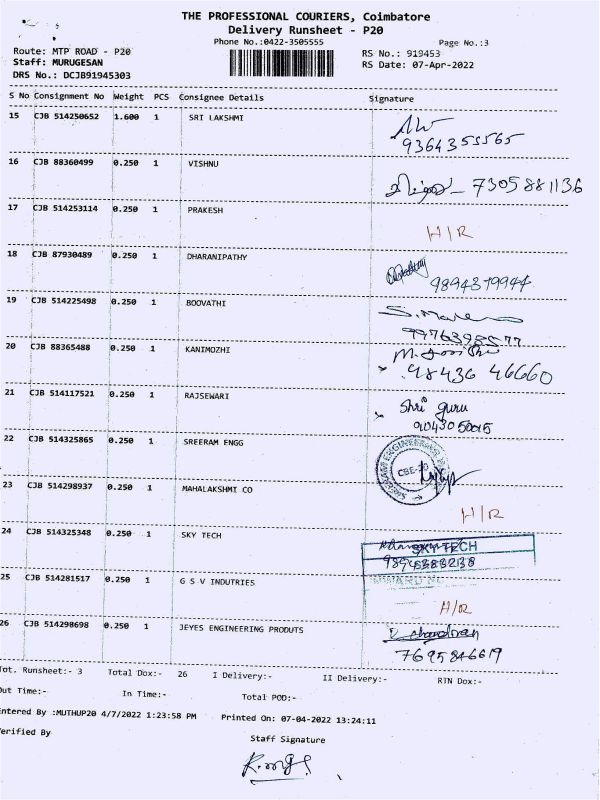 THE PROFESSIONAL COURIERS, Coimbatore
Delivery Runsheet - P20
Phone No.:0422-3505555
Page No.:3
Route: MTP ROAD - P20
RS No.: 919453
Staff: MURUGESAN
RS Date: 07-Apr-2022
DRS No.: DCJB91945303
S No Consignment No Weight PCS Consignee Details Signature
15 CJB 514250652 1.600 1 SRI LAKSHMI
9364355565
16 CJB 88360499 0.250 1 VISHNU
7305881136
17 CJB 514253114 0.250 1 PRAKESH
H/R
18 CJB 87930489 0.250 1 DHARANIPATHY
9894379944
19 CJB 514225498 0.250 1 BOOVATHI
20 CJB 88365488 0.250 1 KANIMOZHI
98436 46660
21 CJB 514117521 0.250 1 RAJSEWARI
Shri guru
9043050015
22 CJB 514325865 0.250 1 SREERAM ENGG
CBE-20
23 CJB 514298937 0.250 1 MAHALAKSHMI CO
H/R
24 CJB 514325348 0.250 1 SKY TECH
SKY TECH
9894383238
25 CJB 514281517 0.250 1 G S V INDUTRIES
H/R
26 CJB 514298698 0.250 1 JEYES ENGINEERING PRODUTS
7695846619
Tot. Runsheet:- 3 Total Dox:- 26 I Delivery:- II Delivery:- RTN Dox:-
Out Time:- In Time:- Total POD:-
Entered By :MUTHUP20 4/7/2022 1:23:58 PM Printed On: 07-04-2022 13:24:11
Verified By
Staff Signature